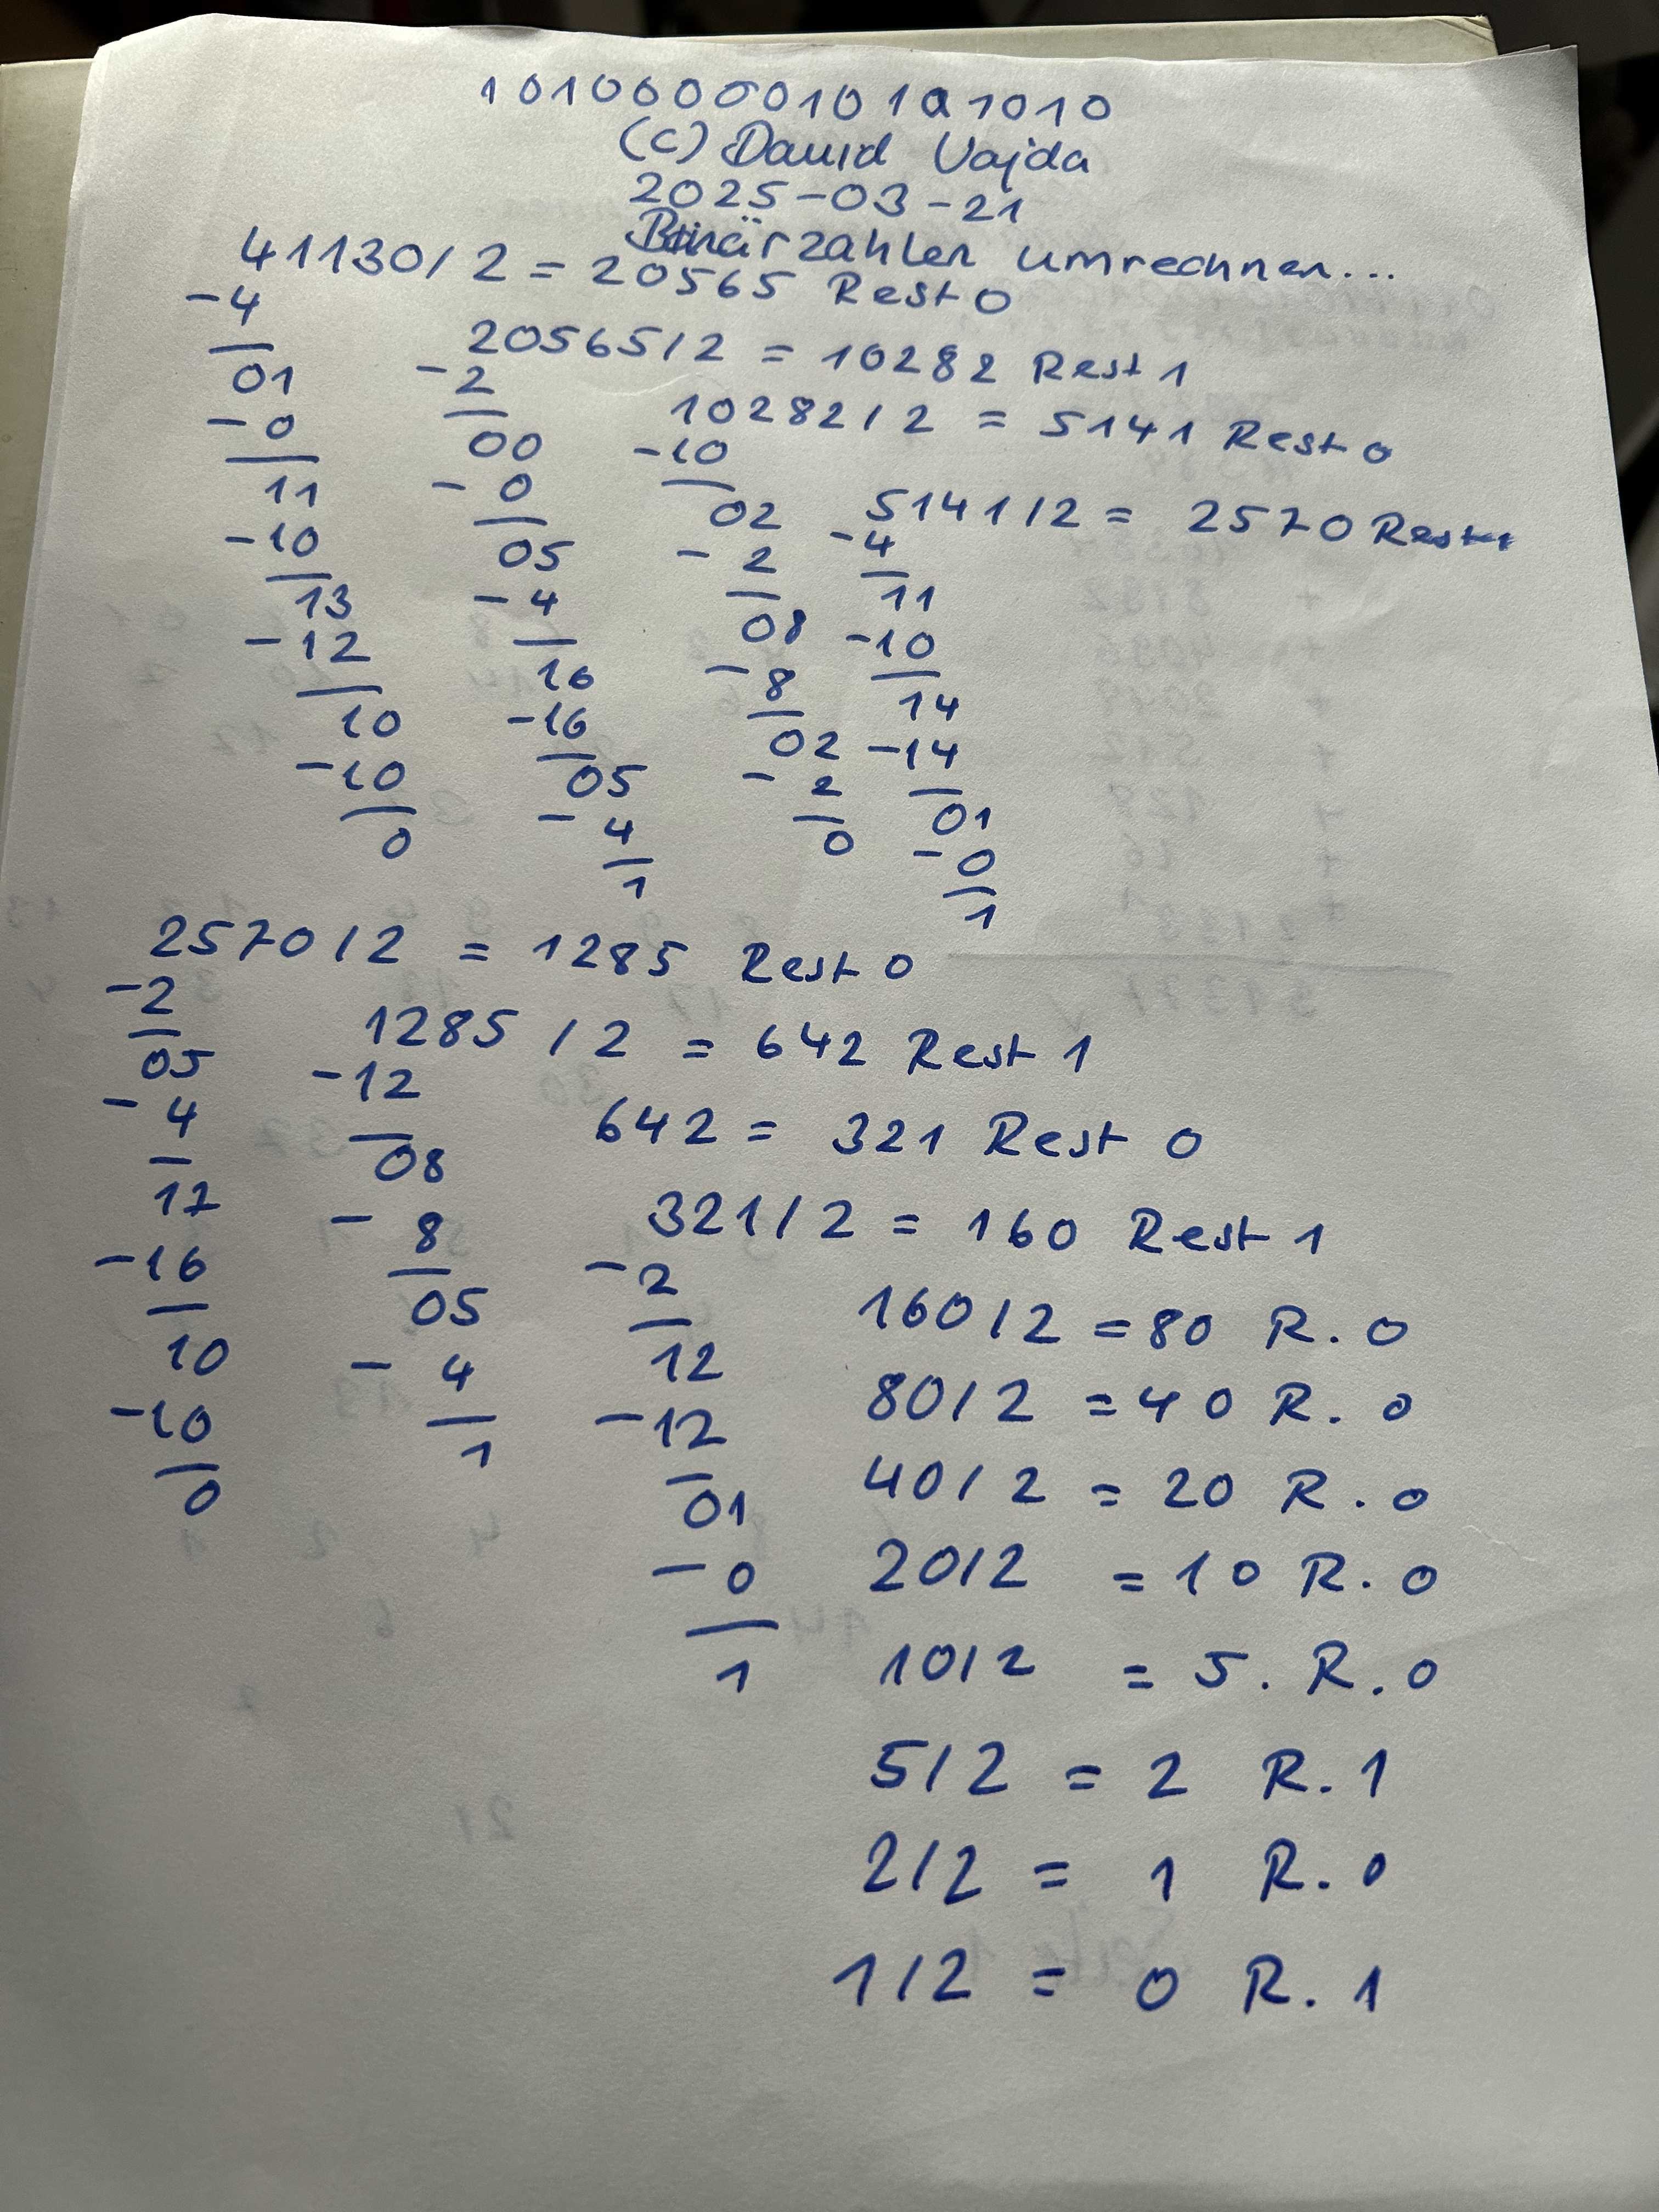 1010000010101010
(C) David Vajda
2025-03-21
Binärzahlen umrechnen...
41130/2 = 20565 Rest 0
-4
01
-0
11
-10
13
-12
10
-10
0
20565/2 = 10282 Rest 1
-2
00
-0
05
-4
16
-16
05
-4
1
10282/2 = 5141 Rest 0
-10
02
-2
08
-8
02
-2
0
5141/2 = 2570 Rest 1
-4
11
-10
14
-14
01
-0
1
2570/2 = 1285 Rest 0
-2
05
-4
17
-16
10
-10
0
1285/2 = 642 Rest 1
-12
08
-8
05
-4
1
642 = 321 Rest 0
321/2 = 160 Rest 1
-2
12
-12
01
-0
1
160/2 = 80 R. 0
80/2 = 40 R. 0
40/2 = 20 R. 0
20/2 = 10 R. 0
10/2 = 5. R. 0
5/2 = 2 R. 1
2/2 = 1 R. 0
1/2 = 0 R. 1